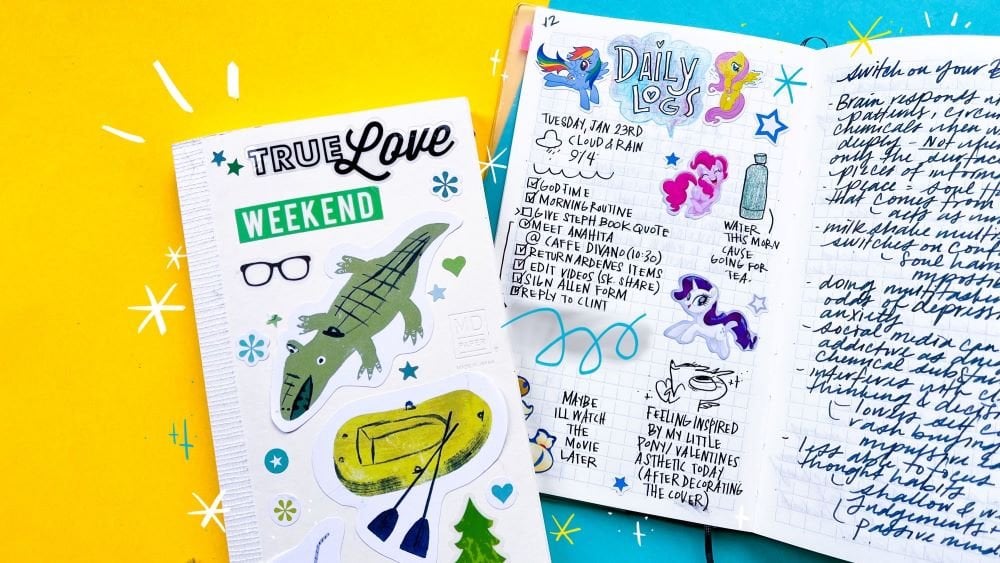 TRUE Love
WEEKEND
MD
PAPER
DAILY
LOGS
TUESDAY, JAN 23RD
CLOUD & RAIN
9/4°
GOD TIME
MORNING ROUTINE
GIVE STEPH BOOK QUOTE
MEET ANAHITA
@ CAFFE DIVANO (10:30)
RETURN ARDENES ITEMS
EDIT VIDEOS (SK. SHARE)
SIGN ALLEN FORM
REPLY TO CLINT
WATER
THIS MORN
CAUSE
GOING FOR
TEA.
MAYBE
ILL WATCH
THE
MOVIE
LATER
FEELING INSPIRED
BY MY LITTLE
PONY/VALENTINES
ASTHETIC TODAY
(AFTER DECORATING
THE COVER)
switch on your
- Brain responds
patients,
chemicals when
deeply - Not
only the surface
pieces of
- peace = soul
that comes from
acts as
- milkshake
switches on
soul
- doing
odds of
anxiety
- social media can
addictive as
chemical
- interferes with
thinking &
- less able to focus
thought habits
shallow &
judgements
passive